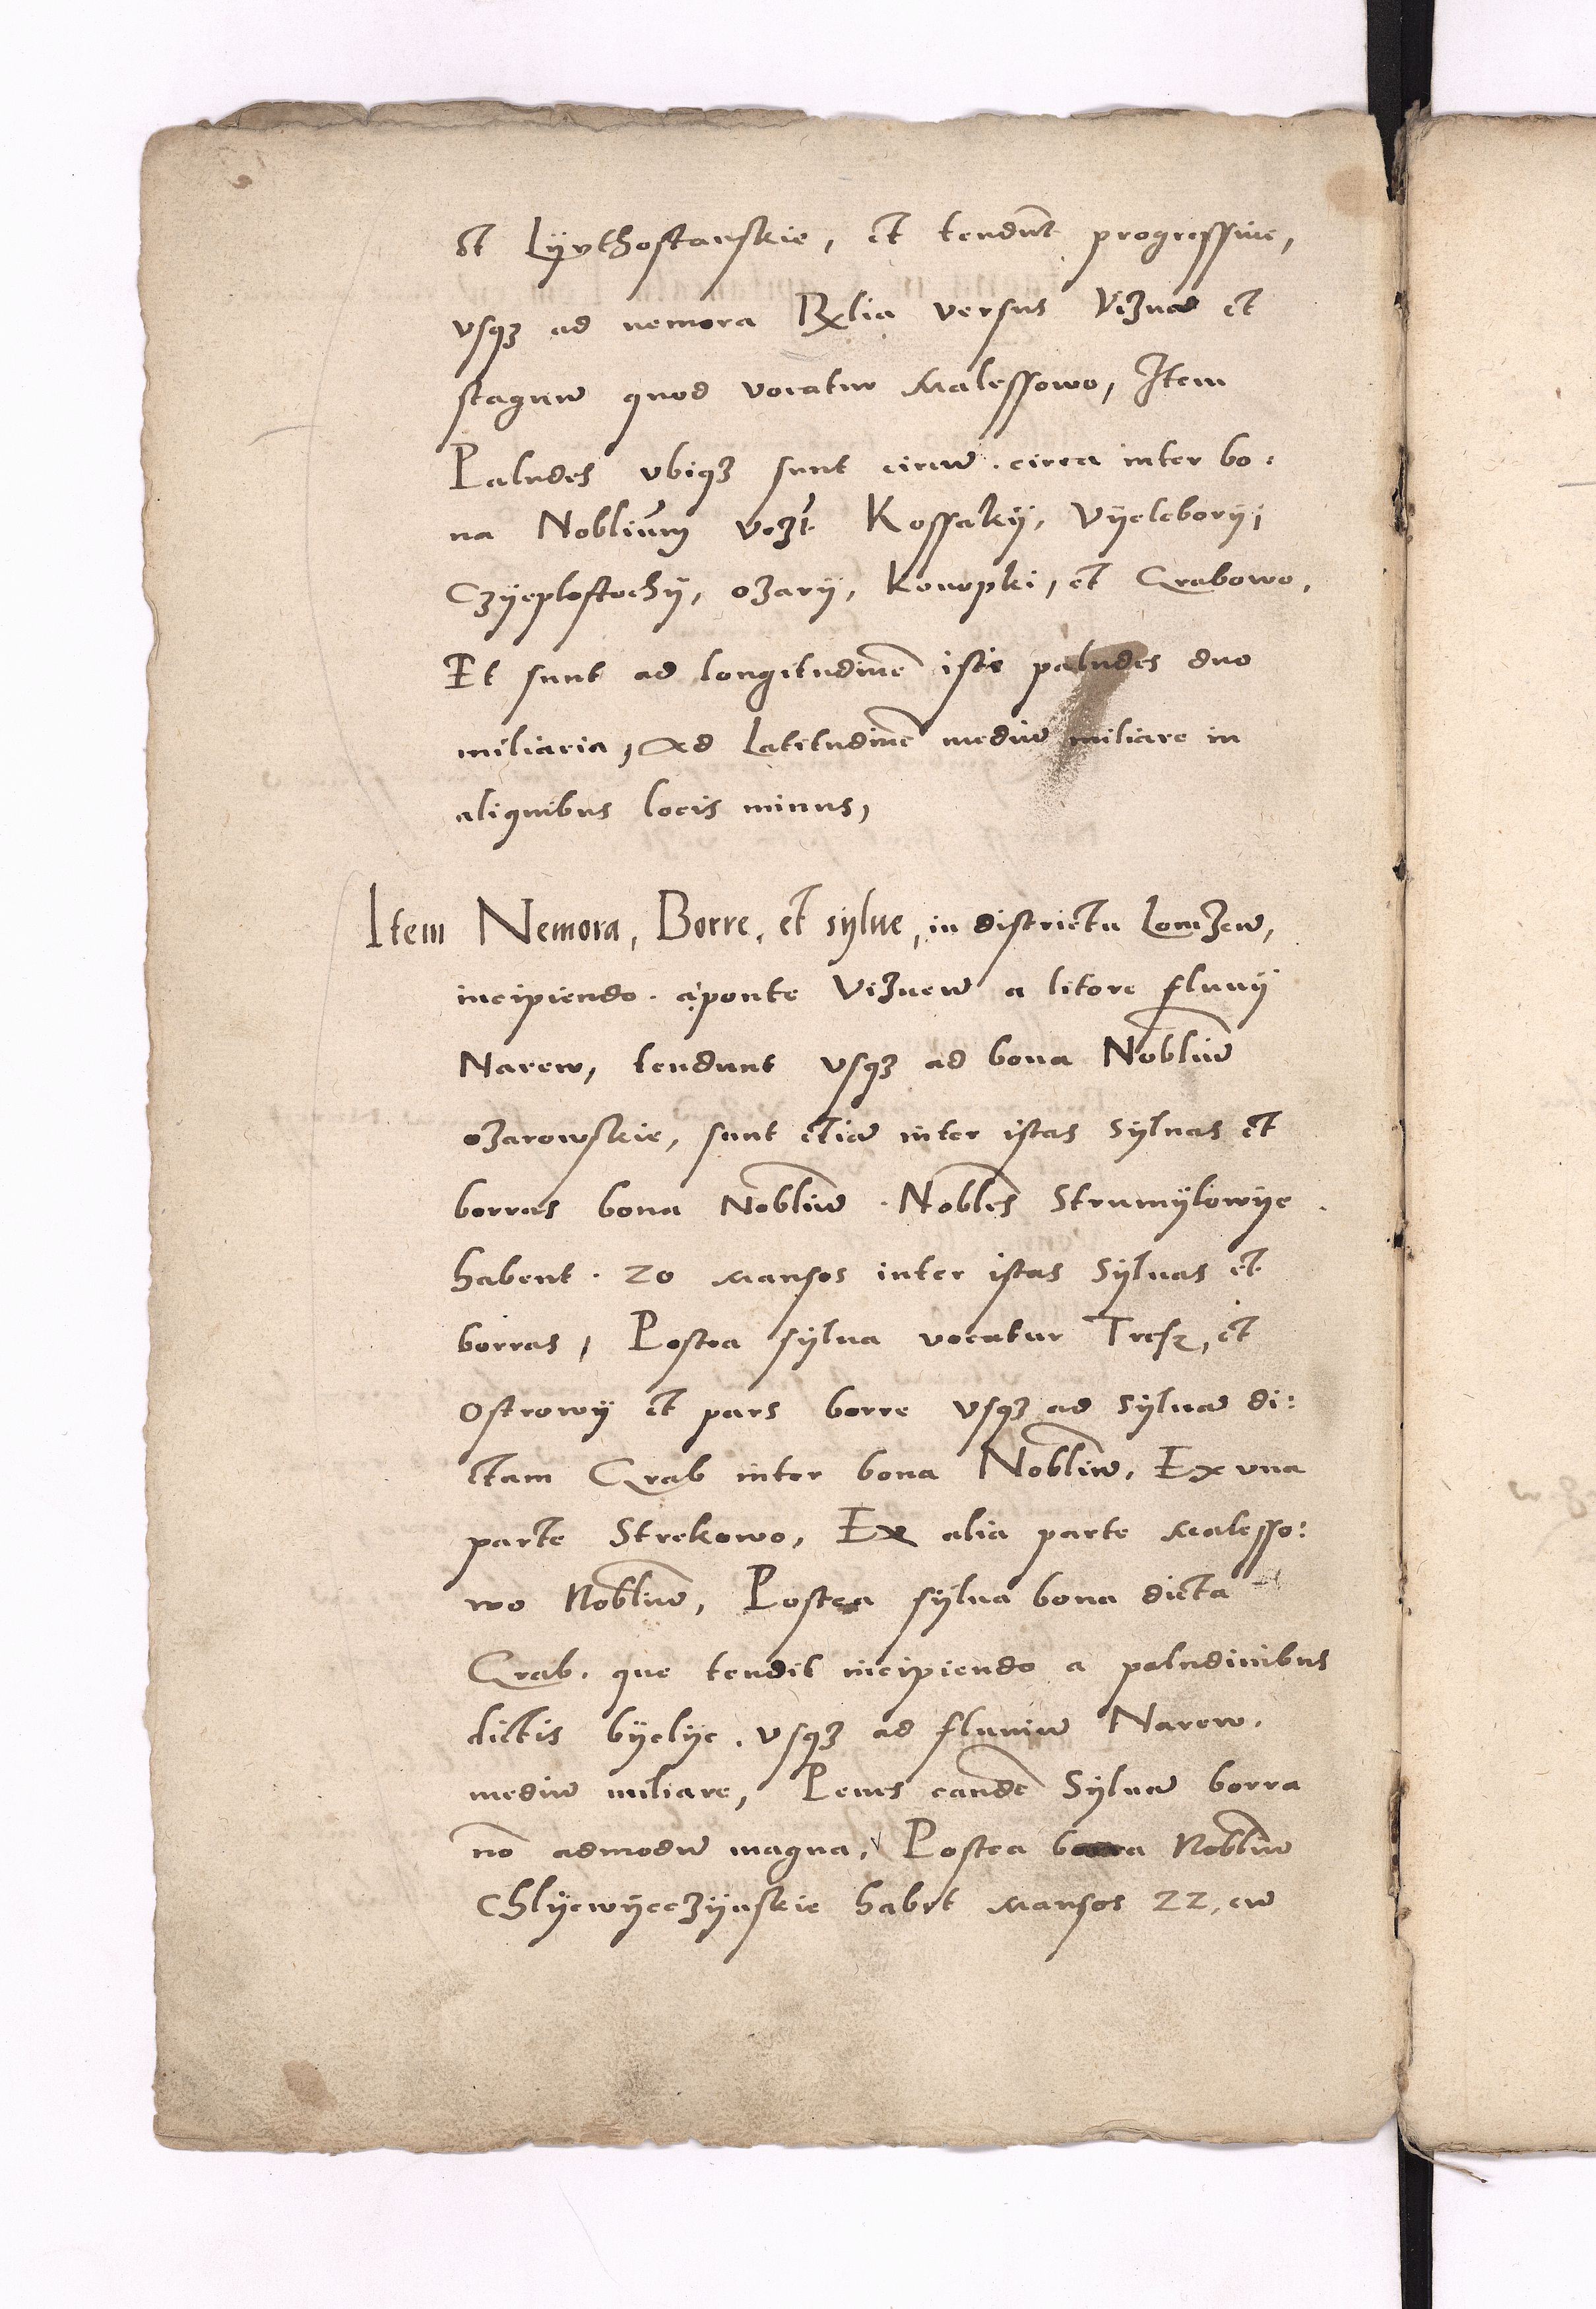 Et Lyvthostanskie, et tendūt progressiue,
vsqꝫ ad nemora Rx̄lia versus Viznā et
stagnū quod vocatur Malessowo, Item
Paludes vbiqꝫ sunt circū. circa inter bo:
na Nobliūm vozt Kossakÿ, Vÿeleborÿ,
Czÿeplostochÿ, ozarÿ, Konopki, et Grabowo.
Et sunt ad longitudinē iste paludes duo
miliaria, Ad Latitudinē mediū miliare in
aliquibus locis minus,
Item Nemora, Borre, et sylue, in districtu Lomzeñ,
incipiendo. a ponte Vizneñ a litore fluuÿ
Narew, tendunt vsqꝫ ad bona Nobliū
ozarowskie, sunt etiā inter istas Syluas et
borras bona Nobliū. Nobles Strumÿlowÿe
habent. 20 Mansos inter istas Sÿluas et
borras, Postea sÿlua vocatur Tresz, et
Ostrowÿ et pars borre vsqꝫ ad Sÿluā di:
ctam Grab inter bona Nobliū, Ex vna
parte Strekowo, Ex alia parte Malesso:
wo Nobliū, Postea sÿlua bona dicta
Grab. que tendit incipiendo a paludinibus
dictis bÿelÿe. vsqꝫ ad fluuiū Narew.
mediū miliare, Penes eandē Sÿluā borra
nō admodū magna, Postea bona Nobliū
Chlÿewÿeczÿnskie habēt Mansos 22, cū